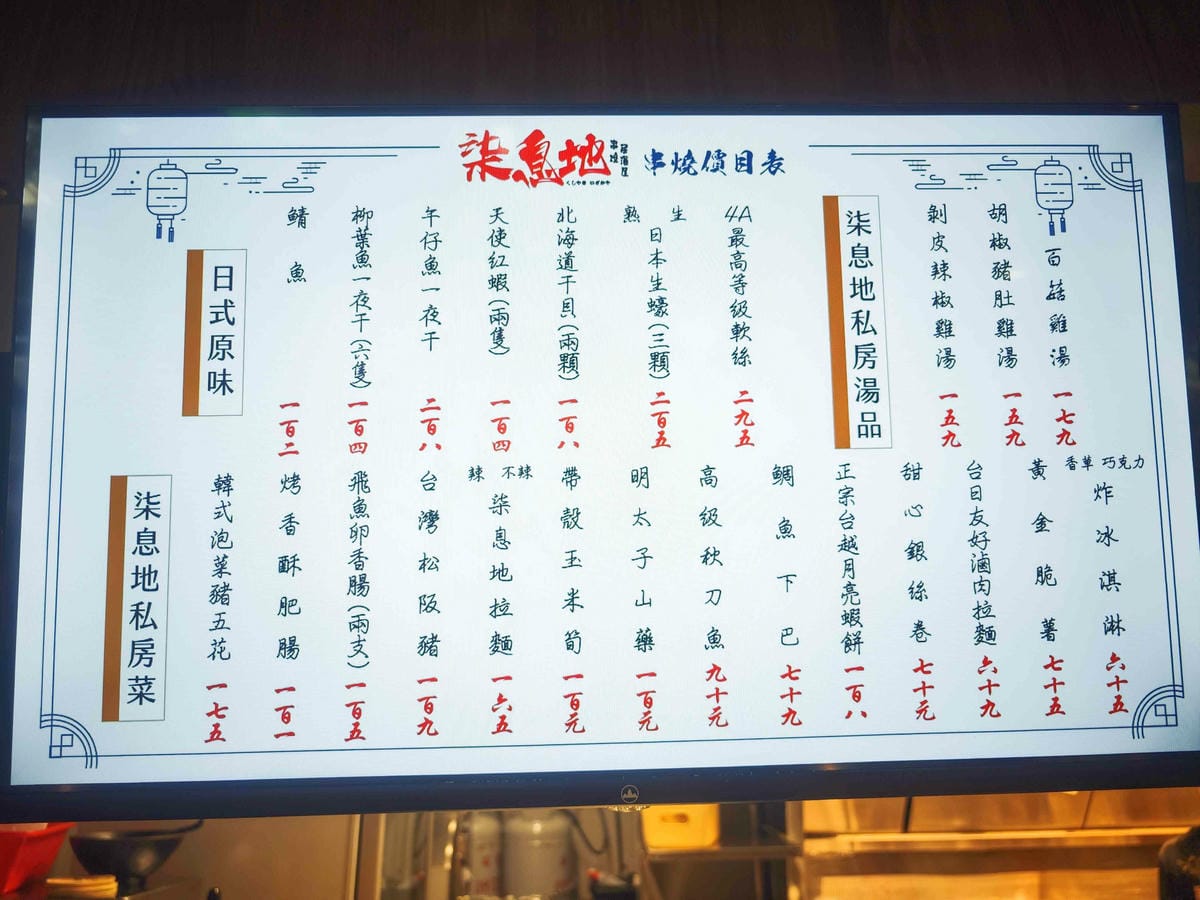 柒息地
串燒
居酒屋
くしやき いざかや
串燒價目表
柒息地私房湯品
百菇雞湯 一七九
胡椒豬肚雞湯 一五九
剝皮辣椒雞湯 一五九
4A最高等級軟絲 二九五
生 熟
日本生蠔(三顆) 二百五
北海道干貝(兩顆) 一百八
天使紅蝦(兩隻) 一百四
午仔魚一夜干 二百八
柳葉魚一夜干(六隻) 一百四
鯖魚 一百二
日式原味
香草 巧克力
炸冰淇淋 六十五
黃金脆薯 七十五
台日友好滷肉拉麵 六十九
甜心銀絲卷 七十元
正宗台越月亮蝦餅 一百八
鯛魚下巴 七十九
高級秋刀魚 九十元
明太子山藥 一百元
帶殼玉米筍 一百元
不辣 辣
柒息地拉麵 一六五
台灣松阪豬 一百九
飛魚卵香腸(兩支) 一百五
烤香酥肥腸 一百一
韓式泡菜豬五花 一七五
柒息地私房菜